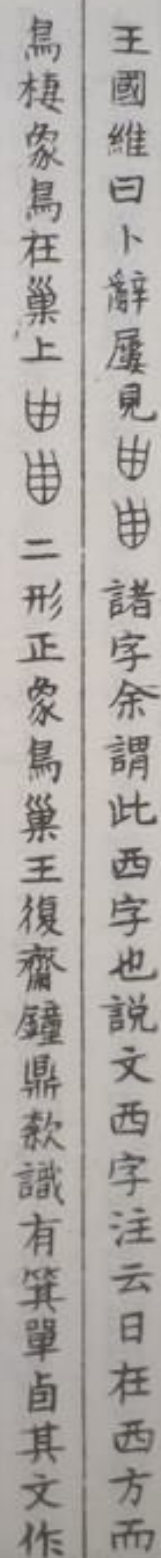 王國維曰卜辭屢見諸字余謂此西字也說文西字注云日在西方而
鳥棲象鳥在巢上二形正象鳥巢王復齋鐘鼎款識有箕單卣其文作